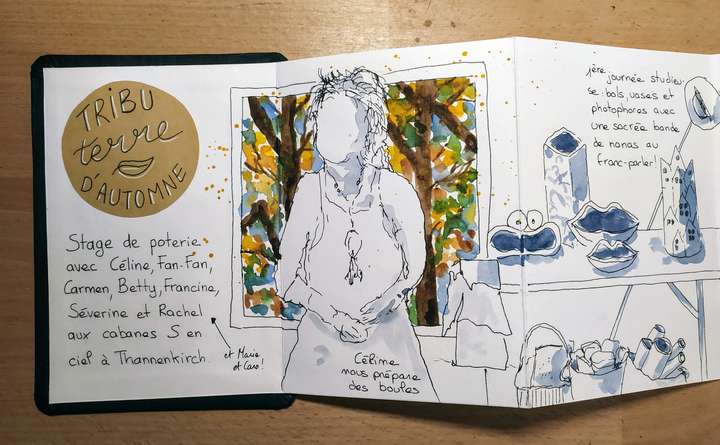 TRIBU
terre
D'AUTOMNE
Stage de poterie
avec Céline, Fan-Fan,
Carmen, Betty, Francine,
Séverine et Rachel
aux cabanes S en
ciel à Thannenkirch
et Marie
et Caro!
Céline
nous prépare
des boules
1ère journée studieu-
se: bols, vases et
photophores avec
une sacrée bande
de nanas au
franc-parler!